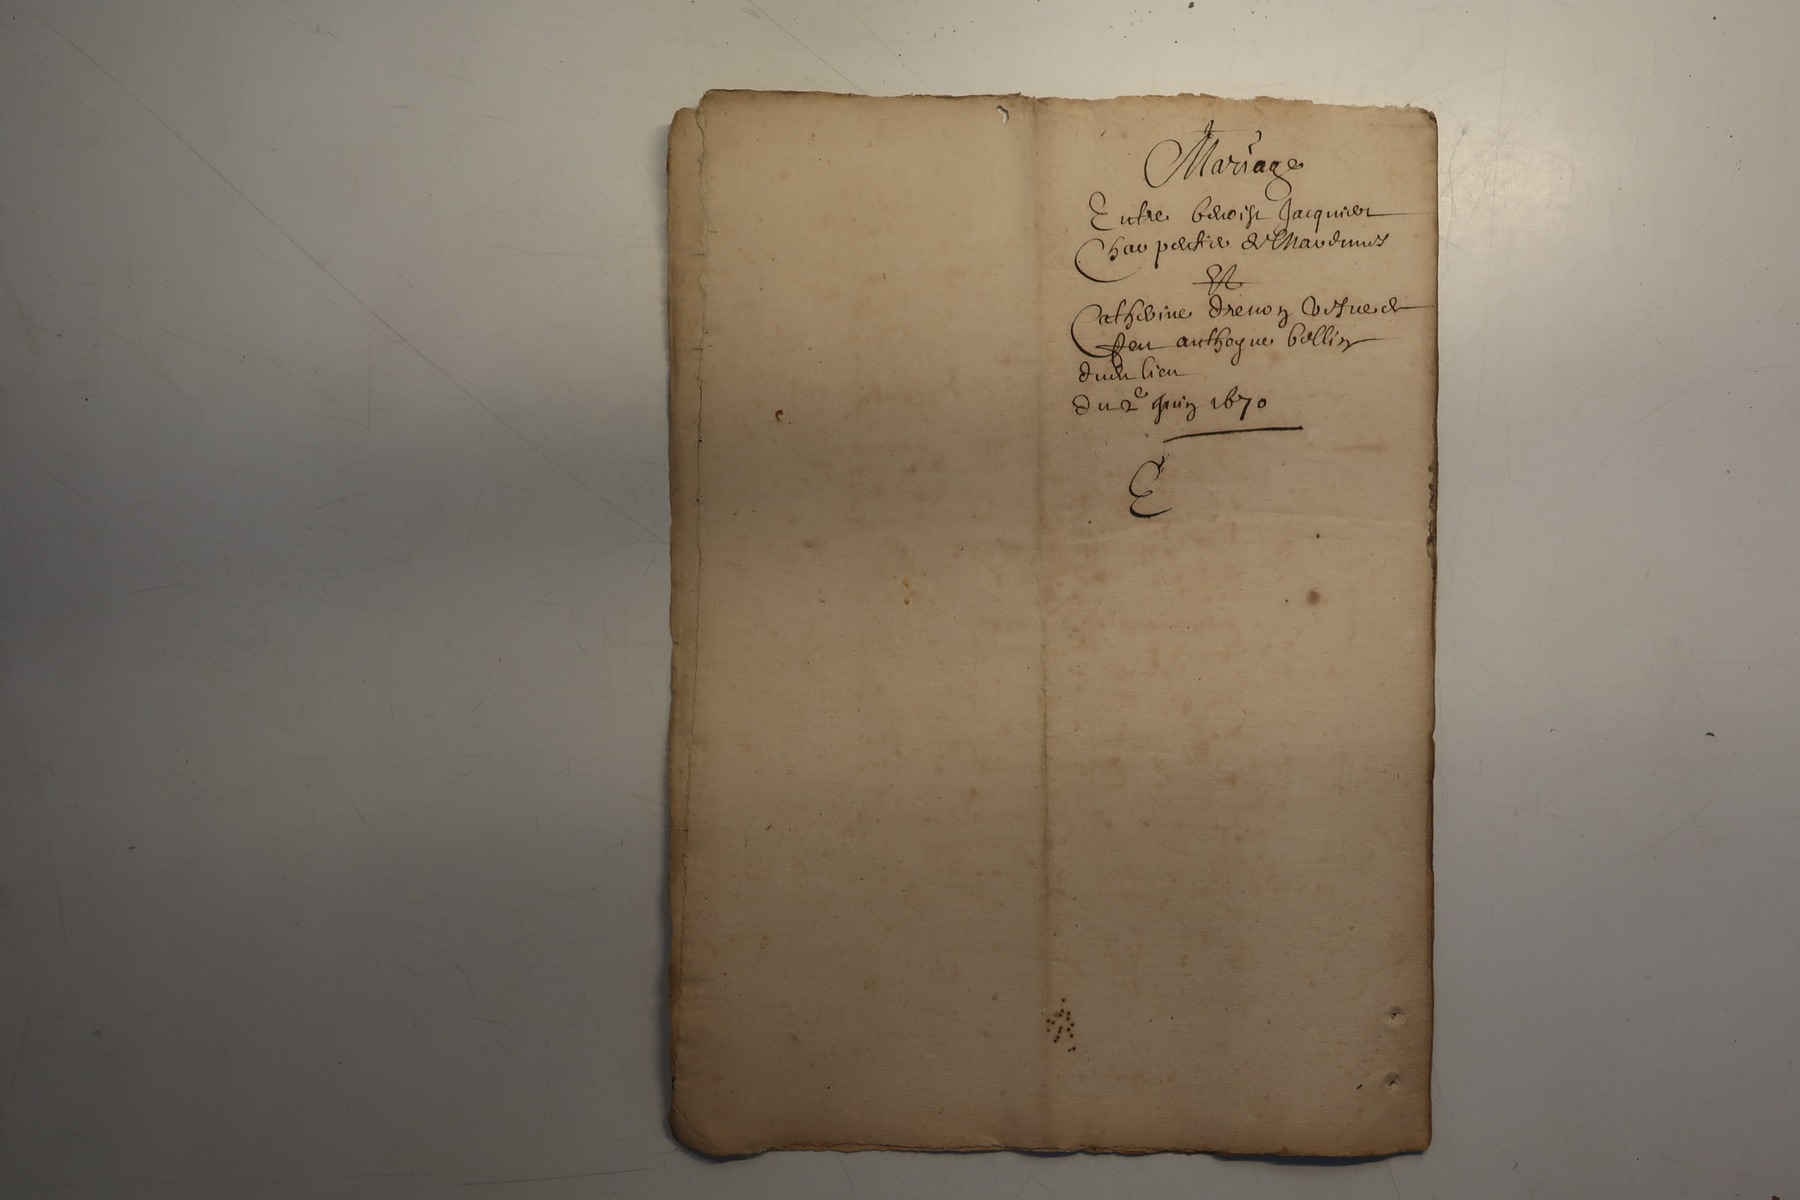 Mariage
Entre benoist Jacquier
Charpentier de
Et
Catherine drevon vesve de
feu anthoyne bellin
dudit lieu
du 2e juin 1670
E